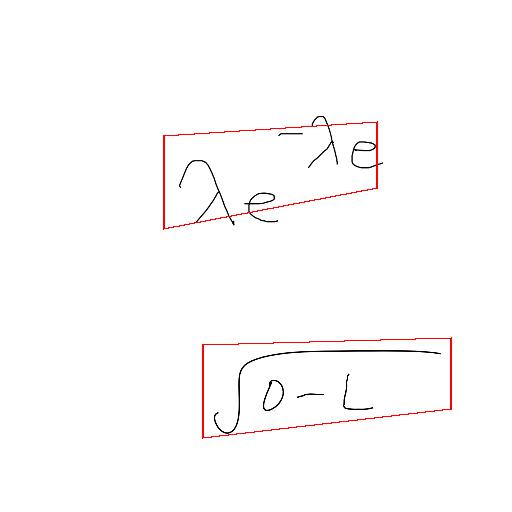 λe^{-λe}
√(0-L)